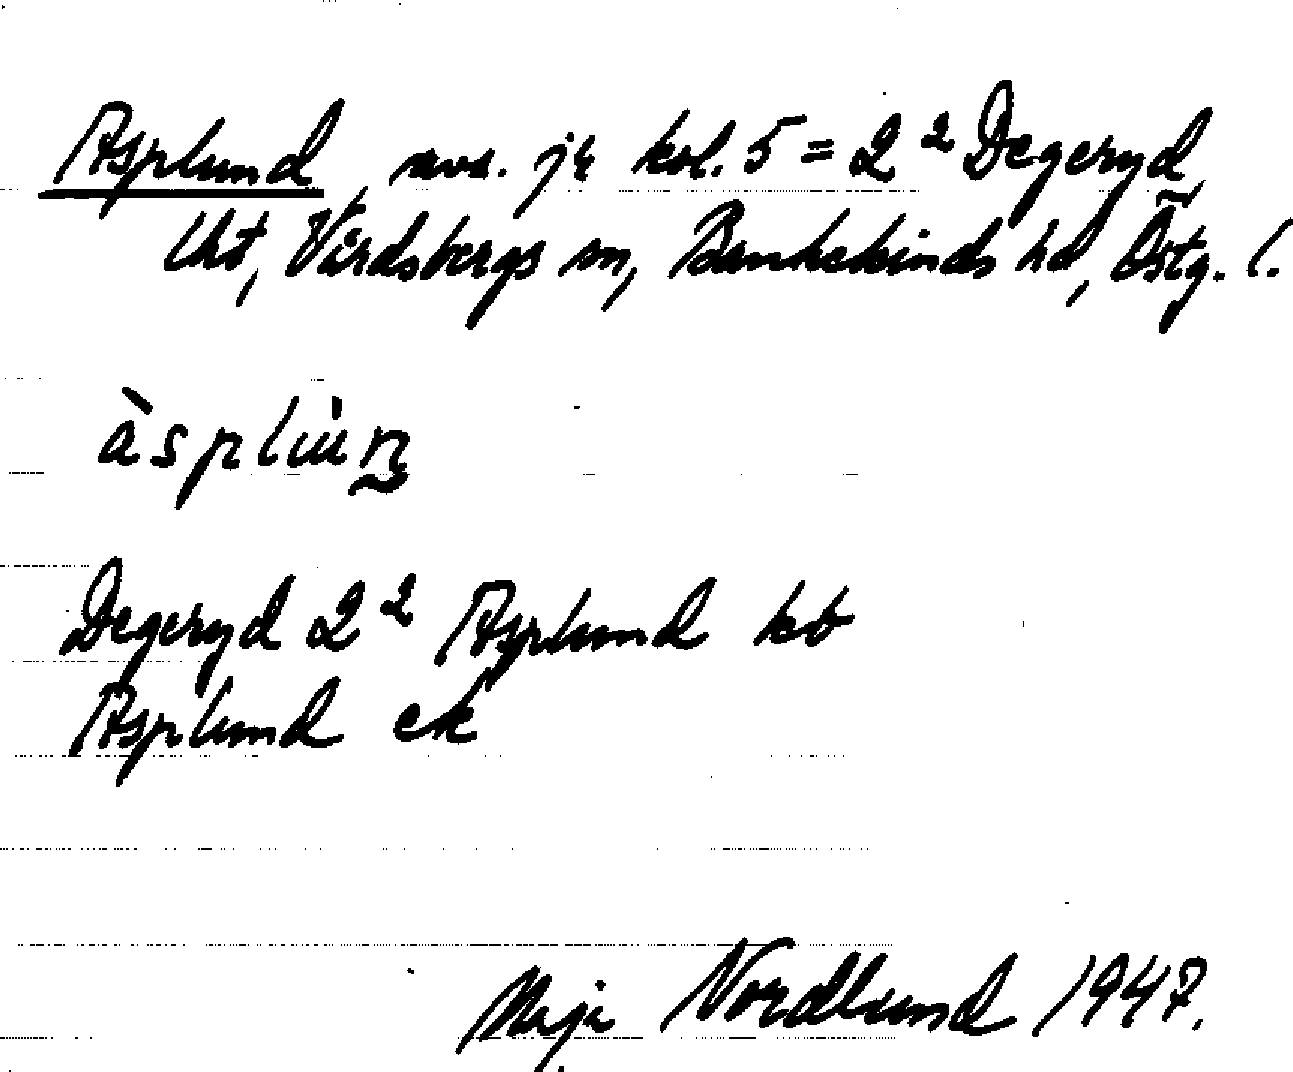 Asplund, avs. jr kol. 5 = 2² Degeryd,
Uht, Vårdsbergs sn, Bankekinds hd, Östg. l.
àspluǹ
Degeryd 2² Asplund kb
Asplund ek
Maja Nordlund 1947.